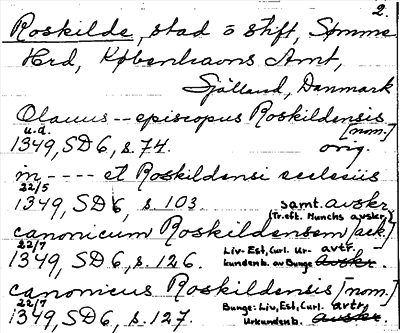 2.
Roskilde, stad o stift, Sømme
Hrd, Københavns Amt,
Sjålland, Danmark
Olauus -- episcopus Roskildensis
[nom.]
u.d.
1349, SD6, s. 74. orig.
in ---- et Roskildensi ecclesiis
22/5
1349, SD6, s. 103. samt. avskr.
(Tr. eft. Munchs avskr.)
canonicum Roskildensem [ack.]
22/7
1349, SD6, s. 126. Liv-Est, Curl. Ur- avtr.
kundenb. av Bunge avskr.
canonicus Roskildensis [nom.]
22/7 Bunge: Liv, Est, Curl. avtr.
1349, SD6, s. 127. Urkundenb. avskr.